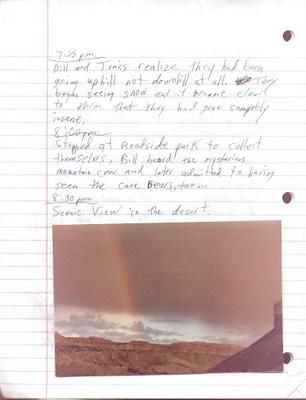 7:55 pm.
Bill and Travis realize they had been
going uphill not downhill at all. They
began seeing snow and it became clear
to them that they had gone completly
insane.
8:00 pm
Stopped at Roadside park to collect
themselves, Bill heard the mysterious
mountain cow and later admitted to having
seen the care Bears, too
8:30 pm
Scenic View in the desert.